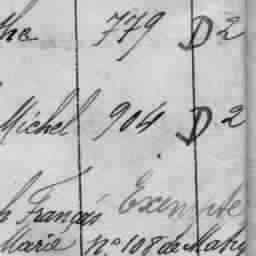 the 779 D2
Michel 904 D2
h François Exempte
Marie no 108 de Mahy